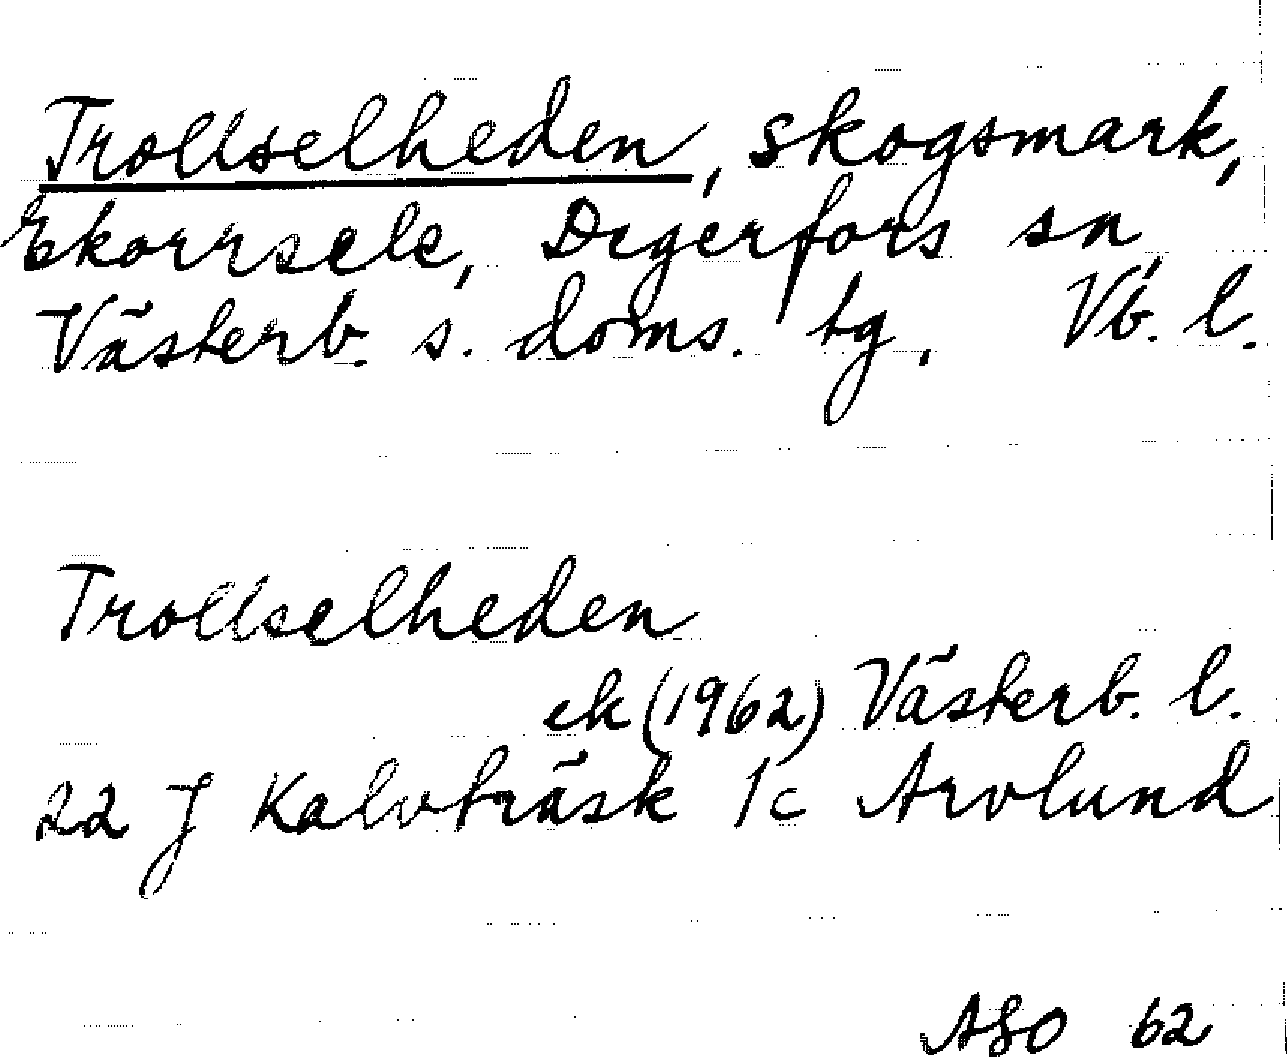 Trollselheden, skogsmark,
Ekorrsele, Degerfors sn,
Västerb. s. doms. tg, Vb. l.
Trollselheden
ek (1962) Västerb. l.
22 J Kalvträsk 1c Arvlund
ASO 62